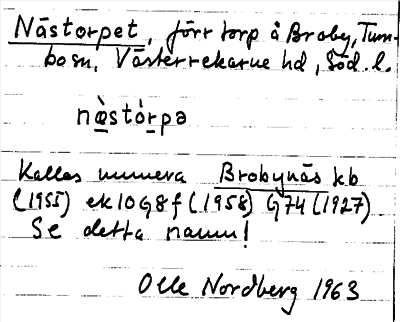 Nästorpet, förr torp å Broby, Tum-
bo sn, Västerrekarne hd, Söd. l.
næ̀stòrpə
Kallas numera Brobynäs kb
(1955) ek 10G8f (1958) G74 (1927)
Se detta namn!
Olle Nordberg 1963